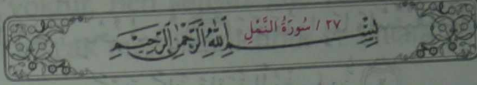 ٢٧ / سُورَةُ النَّمْلِ
بِسْمِ اللَّهِ الرَّحْمَٰنِ الرَّحِيمِ